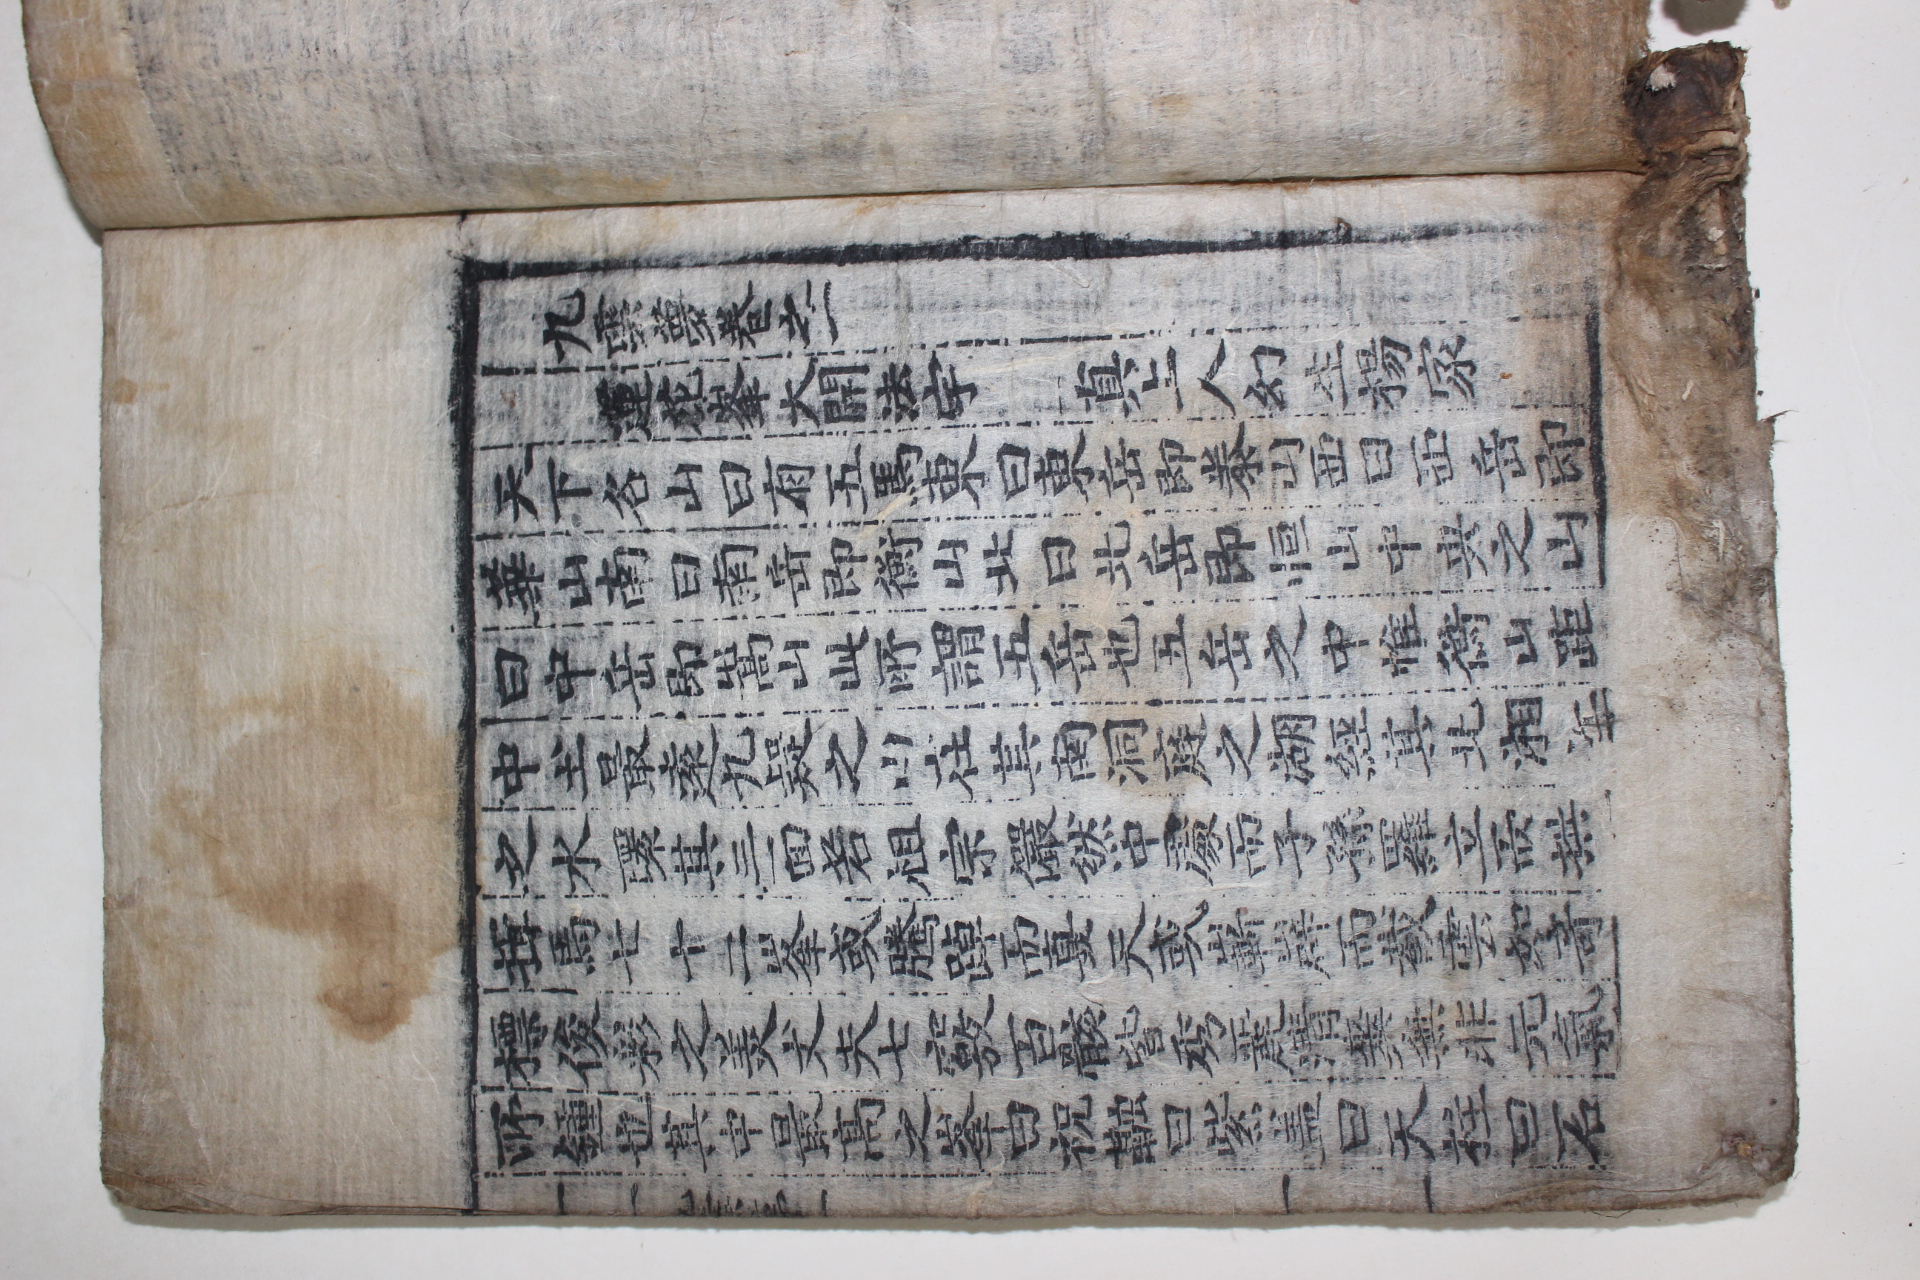 九雲夢卷之一
蓮花峯大開法宇　真上人幻生楊家
天下名山曰有五焉東曰東岳即泰山西曰西岳即
華山南曰南岳即衡山北曰北岳即恒山中央之山
曰中岳即嵩山此所謂五岳也五岳之中惟衡山距
中土最遠九疑之山在其南洞庭之湖經其北湘江
之水環其三面若祖宗儼然中處而子孫羅立而拱
揖焉七十二峯或騰踔而戛天或嶄嶭而截雲如奇
標俊彩之美丈夫七竅百骸皆秀麗清爽無非元氣
所鍾也其中最高之峯曰祝融曰紫盖曰天柱曰石